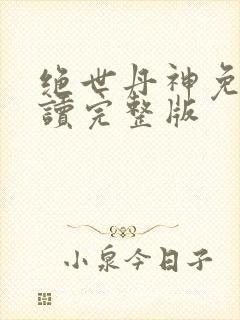 绝世丹神免
讀完整版
小泉今日子